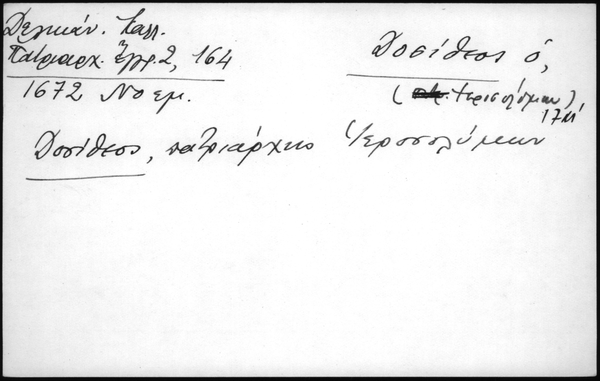 Δελικάν. Καλλ.
Πατριαρχ. Ἔγγρ. 2, 164
1672 Νοεμ.
Δοσίθεος ὁ,
( Ἱεροσολύμων),
17
Δοσίθεος, πατριάρχης Ἱεροσολύμων